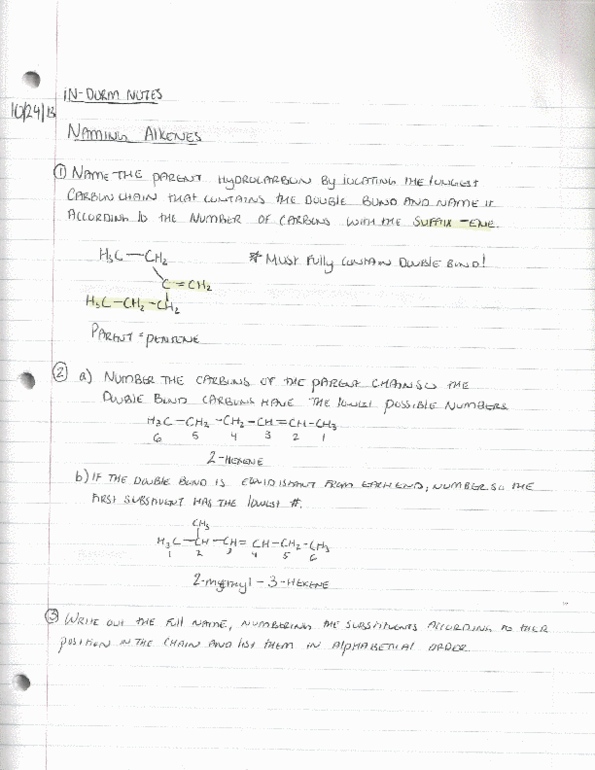 IN-DORM NOTES
10/24/13
NAMING ALKENES
① NAME THE PARENT HYDROCARBON BY LOCATING THE LONGEST
CARBON CHAIN THAT CONTAINS THE DOUBLE BOND AND NAME IT
ACCORDING TO THE NUMBER OF CARBONS WITH THE SUFFIX -ENE.
H₃C—CH₂ * MUST FULLY CONTAIN DOUBLE BOND!
C=CH₂
H₃C—CH₂—CH₂
PARENT = PENTENE
② a) NUMBER THE CARBONS OF THE PARENT CHAIN SO THE
DOUBLE BOND CARBONS HAVE THE LOWEST POSSIBLE NUMBERS
H₃C—CH₂—CH₂—CH=CH—CH₃
6 5 4 3 2 1
2-HEXENE
b) IF THE DOUBLE BOND IS EQUIDISTANT FROM EACH END, NUMBER SO THE
FIRST SUBSTITUENT HAS THE LOWEST #.
CH₃
H₃C—CH—CH=CH—CH₂—CH₃
1 2 3 4 5 6
2-methyl-3-HEXENE
③ WRITE OUT THE FULL NAME, NUMBERING THE SUBSTITUENTS ACCORDING TO THEIR
POSITION IN THE CHAIN AND LIST THEM IN ALPHABETICAL ORDER